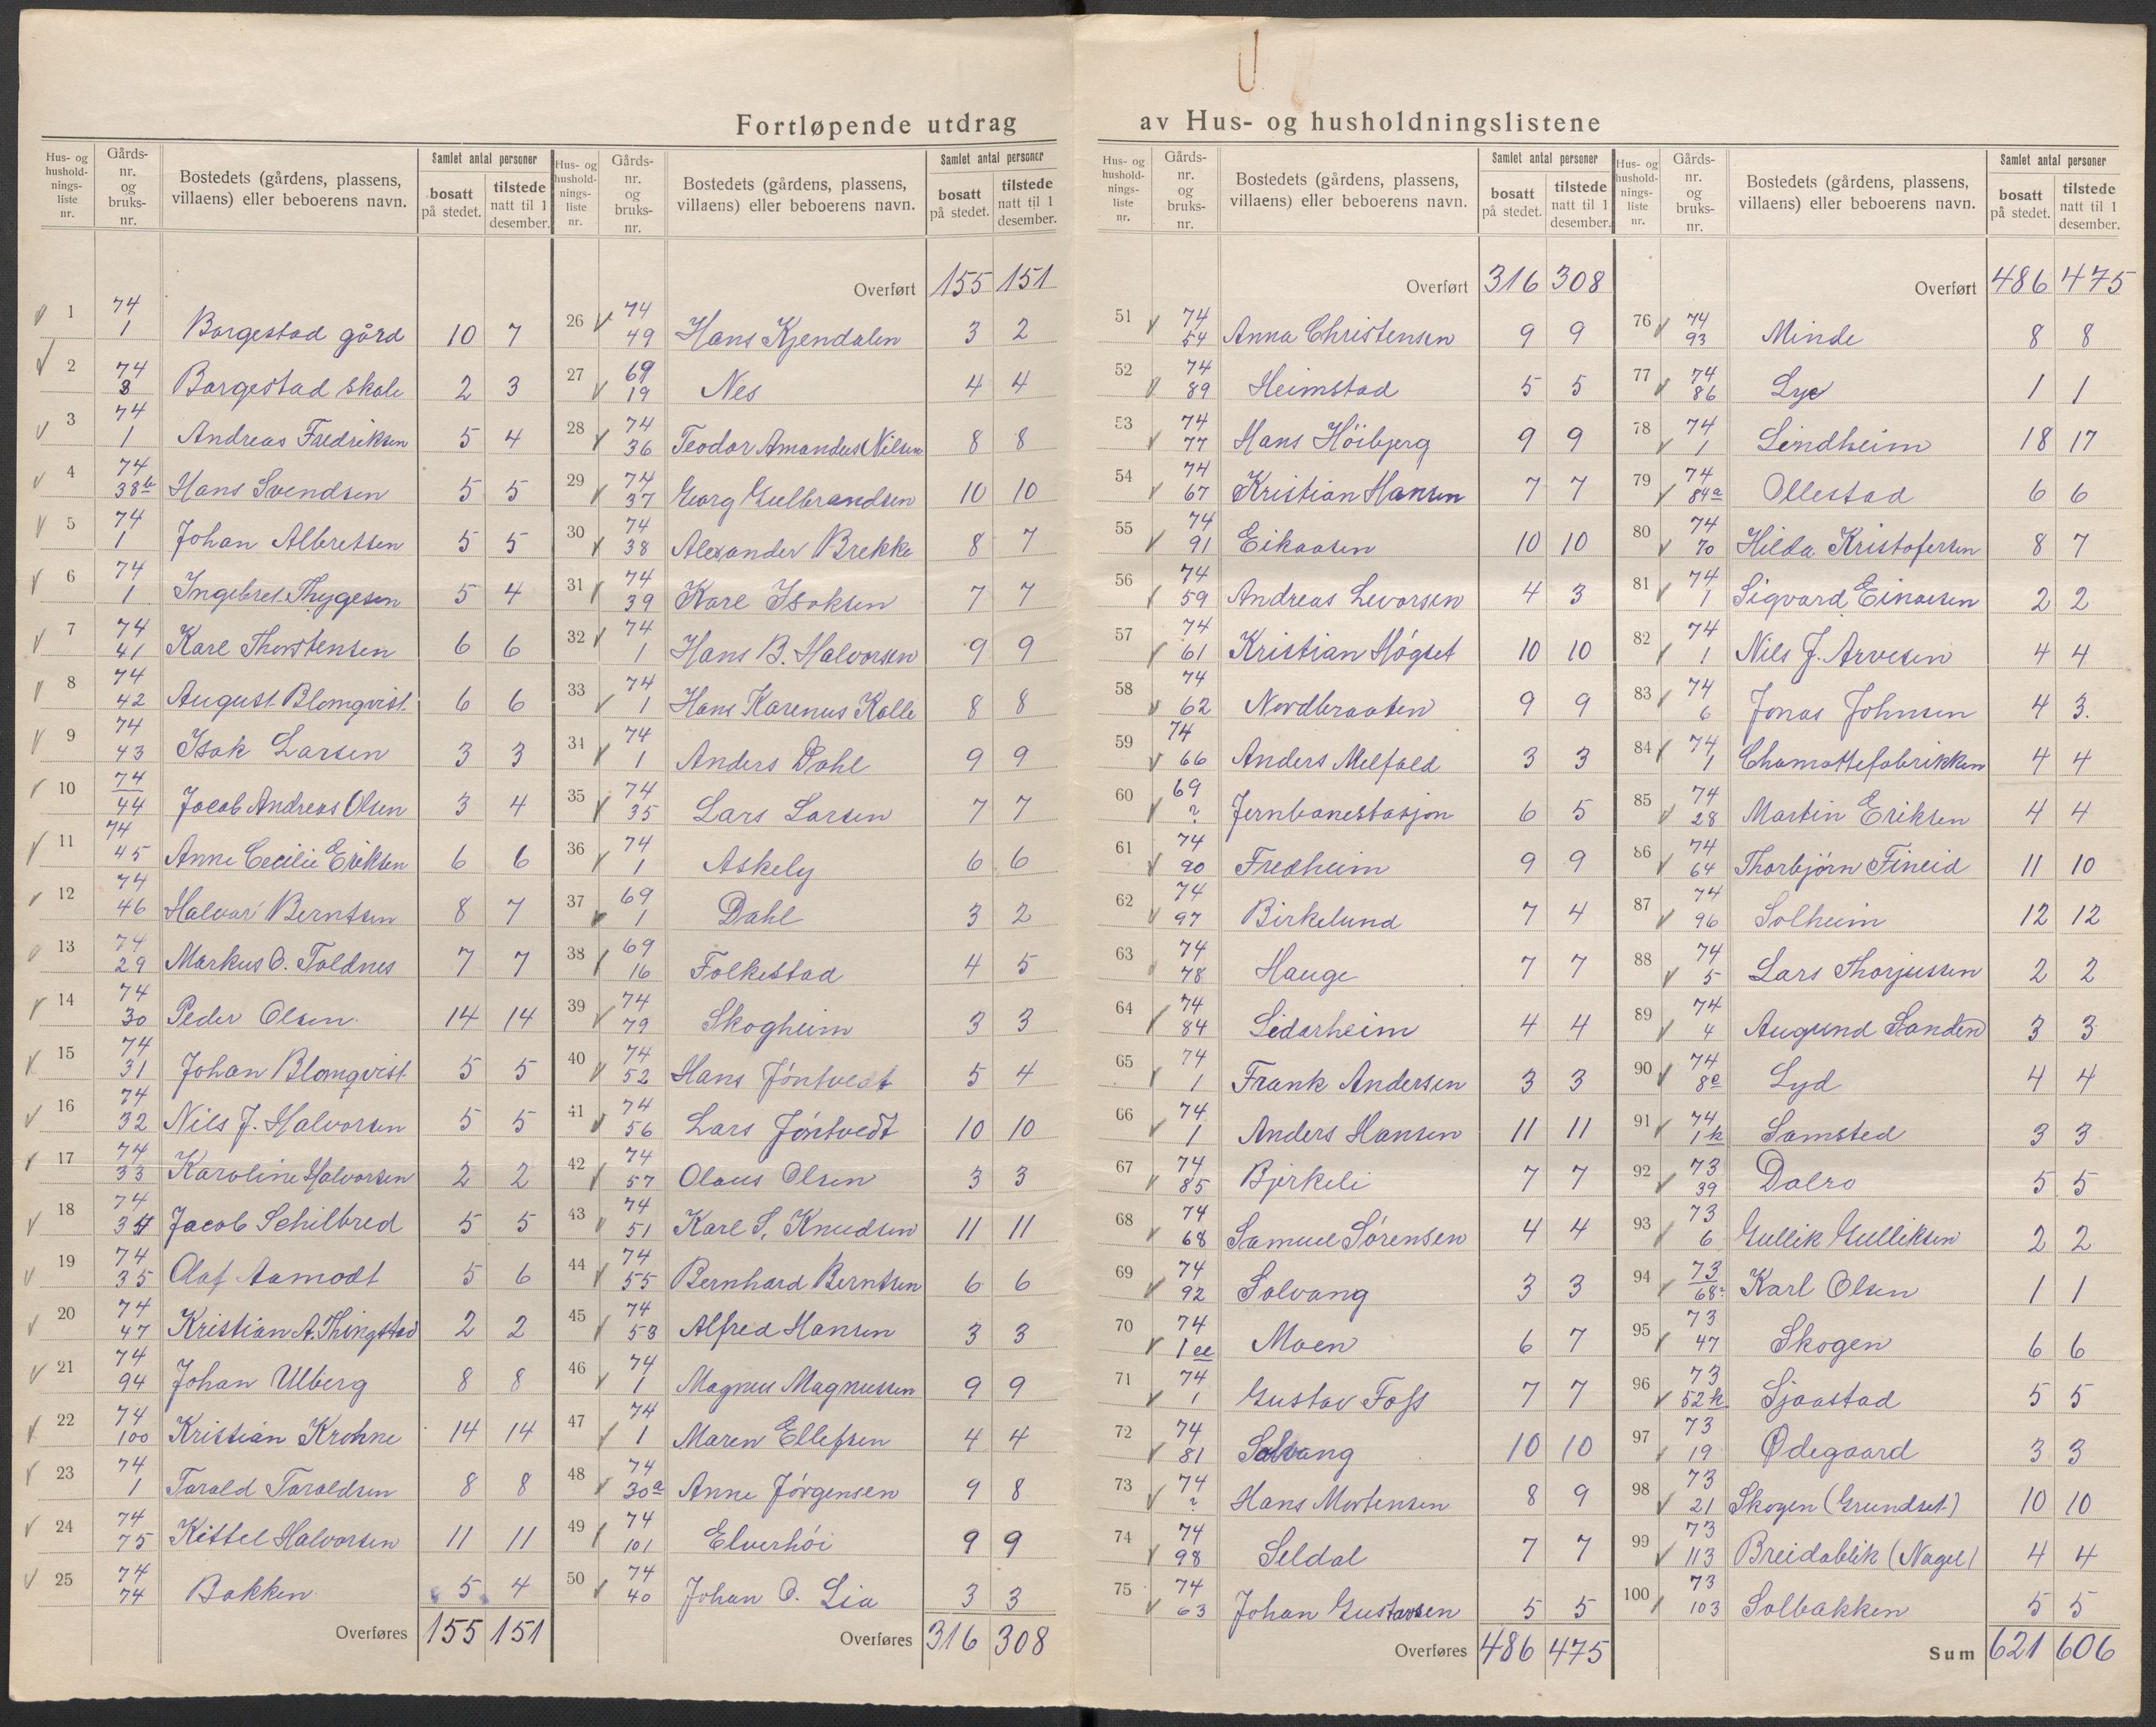 Fortløpende utdrag av Hus- og husholdningslistene
Hus- og hushold- nings- liste nr. | Gårds- nr. og bruks- nr. | Bostedets (gårdens, plassens, villaens) eller beboerens navn. | Samlet antal personer | bosatt på stedet. | tilstede natt til 1 desember.
1 74/1 Borgestad gård 10 7
2 74/3 Borgestad skole 2 3
3 74/1 Andreas Fredriksen 5 4
4 74/38b Hans Svendsen 5 5
5 74/1 Johan Albretsen 5 5
6 74/1 Ingebret Thygesen 5 4
7 74/41 Karl Thorstensen 6 6
8 74/42 August Blomqvist 6 6
9 74/43 Isak Larsen 3 3
10 74/44 Jacob Andreas Olsen 3 4
11 74/45 Anne Cecilie Eriksen 6 6
12 74/46 Halvor Berntsen 8 7
13 74/29 Markus O. Toldnes 7 7
14 74/30 Peder Olsen 14 14
15 74/31 Johan Blomqvist 5 5
16 74/32 Nils J. Halvorsen 5 5
17 74/33 Karoline Halvorsen 2 2
18 74/34 Jacob Schilbred 5 5
19 74/35 Olaf Aamodt 5 6
20 74/47 Kristian A. Thingstad 2 2
21 74/94 Johan Ulberg 8 8
22 74/100 Kristian Krohne 14 14
23 74/1 Tarald Taraldsen 8 8
24 74/75 Kittel Halvorsen 11 11
25 74/74 Bakken 5 4
Overføres 155 151
Hus- og hushold- nings- liste nr. | Gårds- nr. og bruks- nr. | Bostedets (gårdens, plassens, villaens) eller beboerens navn. | Samlet antal personer | bosatt på stedet. | tilstede natt til 1 desember.
Overført 155 151
26 74/49 Hans Kjendalen 3 2
27 69/19 Nes 4 4
28 74/36 Teodor Amandus Nilsen 8 8
29 74/37 Georg Gulbrandsen 10 10
30 74/38 Alexander Brekke 8 7
31 74/39 Karl Isaksen 7 7
32 74/1 Hans B. Halvorsen 9 9
33 74/1 Hans Karenus Kolle 8 8
34 74/1 Anders Dahl 9 9
35 74/35 Lars Larsen 7 7
36 74/1 Askely 6 6
37 69/1 Dahl 3 2
38 69/16 Folkestad 4 5
39 74/79 Skogheim 3 3
40 74/52 Hans Jøntvedt 5 4
41 74/56 Lars Jøntvedt 10 10
42 74/57 Olaus Olsen 3 3
43 74/51 Karl S. Knudsen 11 11
44 74/55 Bernhard Berntsen 6 6
45 74/53 Alfred Hansen 3 3
46 74/1 Magnus Magnussen 9 9
47 74/1 Maren Ellefsen 4 4
48 74/30a Anne Jørgensen 9 8
49 74/101 Elverhöi 9 9
50 74/40 Johan O. Lia 3 3
Overføres 316 308
Hus- og hushold- nings- liste nr. | Gårds- nr. og bruks- nr. | Bostedets (gårdens, plassens, villaens) eller beboerens navn. | Samlet antal personer | bosatt på stedet. | tilstede natt til 1 desember.
Overført 316 308
51 74/54 Anna Christensen 9 9
52 74/89 Heimstad 5 5
53 74/77 Hans Höibjerg 9 9
54 74/67 Kristian Hansen 7 7
55 74/91 Eikaasen 10 10
56 74/59 Andreas Levorsen 4 3
57 74/61 Kristian Høgset 10 10
58 74/62 Nordbraaten 9 9
59 74/66 Anders Melfald 3 3
60 69/? Jernbanestasjon 6 5
61 74/90 Fredheim 9 9
62 74/97 Birkelund 7 4
63 74/78 Hauge 7 7
64 74/84 Lidarheim 4 4
65 74/1 Frank Andersen 3 3
66 74/1 Anders Hansen 11 11
67 74/85 Bjerkeli 7 7
68 74/68 Samuel Sørensen 4 4
69 74/92 Solvang 3 3
70 74/1 Moen 6 7
71 74/1 Gustav Foss 7 7
72 74/81 Solvang 10 10
73 74/? Hans Mortensen 8 9
74 74/98 Seldal 7 7
75 74/63 Johan Gustavsen 5 5
Overføres 486 475
Hus- og hushold- nings- liste nr. | Gårds- nr. og bruks- nr. | Bostedets (gårdens, plassens, villaens) eller beboerens navn. | Samlet antal personer | bosatt på stedet. | tilstede natt til 1 desember.
Overført 486 475
76 74/93 Minde 8 8
77 74/86 1 1
78 74/1 Lindheim 18 17
79 74/84a Ollestad 6 6
80 74/70 Hilda Kristofersen 8 7
81 74/1 Sigvard Einarsen 2 2
82 74/1 Nils J. Arvesen 4 4
83 74/6 Jonas Johnsen 4 3.
84 74/1 Chamottefabrikken 4 4
85 74/28 Martin Eriksen 4 4
86 74/64 Thorbjørn Fineid 11 10
87 74/96 Solheim 12 12
88 74/5 Lars Thorjussen 2 2
89 74/4 Augund Sanden 3 3
90 74/8 Lyd 4 4
91 74/1k Samsted 3 3
92 73/39 Dalro 5 5
93 73/6 Gullik Gulliksen 2 2
94 73/68 Karl Olsen 1 1
95 73/47 Skogen 6 6
96 73/52k Sjaastad 5 5
97 73/19 Ødegaard 3 3
98 73/21 Skogen (Grundset) 10 10
99 73/113 Breidablik (Nagel) 4 4
100 73/103 Solbakken 5 5
Sum 621 606